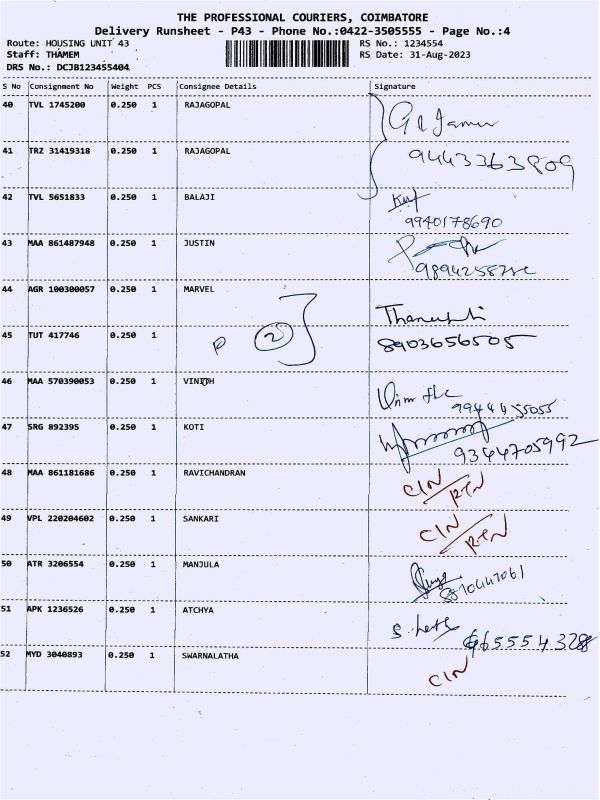 THE PROFESSIONAL COURIERS, COIMBATORE
Delivery Runsheet - P43 - Phone No.:0422-3505555 - Page No.:4
Route: HOUSING UNIT 43 RS No.: 1234554
Staff: THAMEM RS Date: 31-Aug-2023
DRS No.: DCJB123455404
S No Consignment No Weight PCS Consignee Details Signature
40 TVL 1745200 0.250 1 RAJAGOPAL
41 TRZ 31419318 0.250 1 RAJAGOPAL 9443363809
42 TVL 5651833 0.250 1 BALAJI
9940178690
43 MAA 861487948 0.250 1 JUSTIN
44 AGR 100300057 0.250 1 MARVEL
45 TUT 417746 0.250 1 P 2 8903656505
46 MAA 570390053 0.250 1 VINITH
9944455055
47 SRG 892395 0.250 1 KOTI
9344705992
48 MAA 861181686 0.250 1 RAVICHANDRAN CIN/RTN
49 VPL 220204602 0.250 1 SANKARI CIN/RTN
50 ATR 3206554 0.250 1 MANJULA
8870447061
51 APK 1236526 0.250 1 ATCHYA
52 MYD 3040893 0.250 1 SWARNALATHA CIN